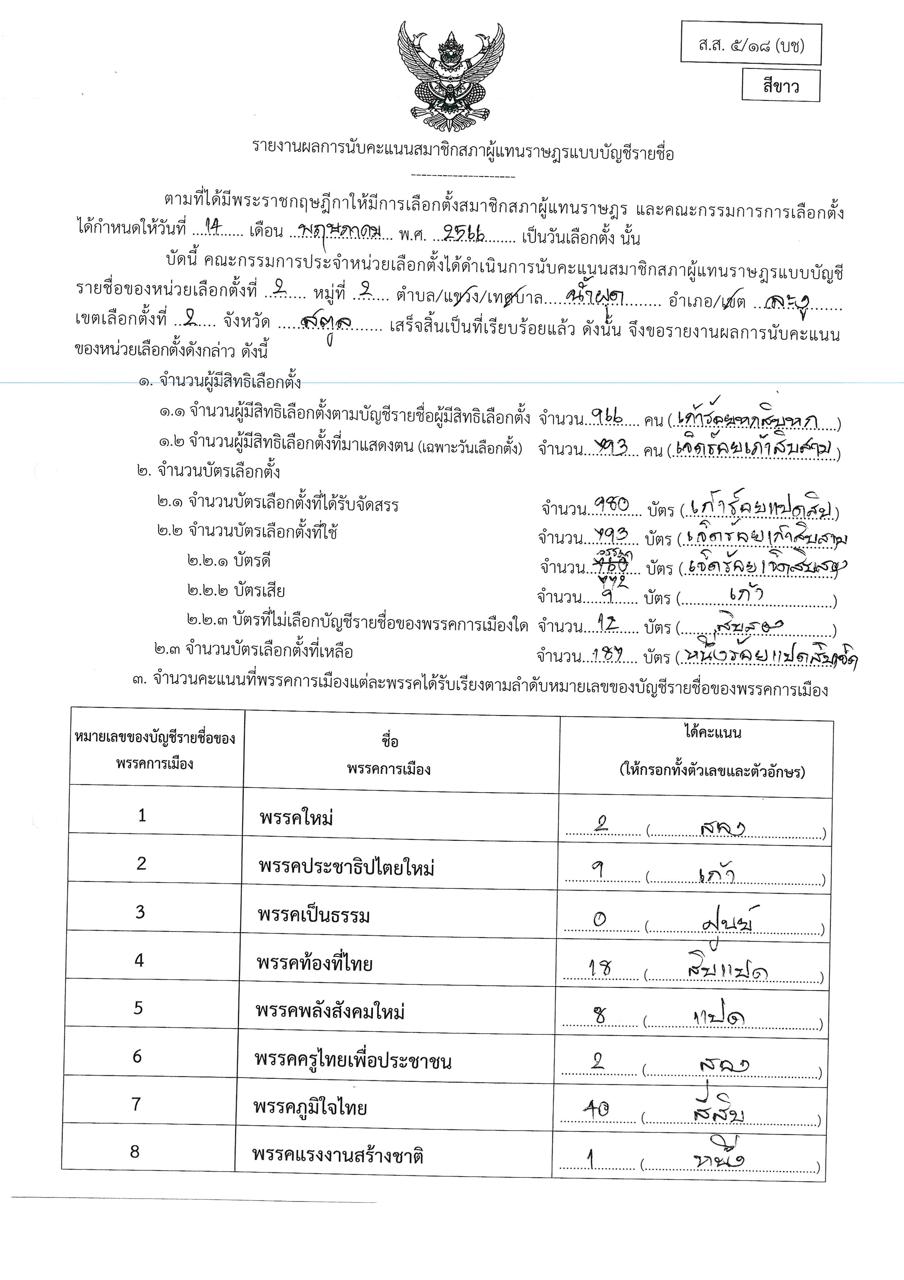 ส.ส. ๕/๑๘ (บช)
สีขาว
รายงานผลการนับคะแนนสมาชิกสภาผู้แทนราษฎรแบบบัญชีรายชื่อ
--------------------
ตามที่ได้มีพระราชกฤษฎีกาให้มีการเลือกตั้งสมาชิกสภาผู้แทนราษฎร และคณะกรรมการการเลือกตั้ง
ได้กำหนดให้วันที่ 14 เดือน พฤษภาคม พ.ศ. 2566 เป็นวันเลือกตั้ง นั้น
บัดนี้ คณะกรรมการประจำหน่วยเลือกตั้งได้ดำเนินการนับคะแนนสมาชิกสภาผู้แทนราษฎรแบบบัญชี
รายชื่อของหน่วยเลือกตั้งที่ 2 หมู่ที่ 2 ตำบล/แขวง/เทศบาล น้ำผุด อำเภอ/เขต ละงู
เขตเลือกตั้งที่ 2 จังหวัด สตูล เสร็จสิ้นเป็นที่เรียบร้อยแล้ว ดังนั้น จึงขอรายงานผลการนับคะแนน
ของหน่วยเลือกตั้งดังกล่าว ดังนี้
๑. จำนวนผู้มีสิทธิเลือกตั้ง
๑.๑ จำนวนผู้มีสิทธิเลือกตั้งตามบัญชีรายชื่อผู้มีสิทธิเลือกตั้ง จำนวน 966 คน (เก้าร้อยหกสิบหก)
๑.๒ จำนวนผู้มีสิทธิเลือกตั้งที่มาแสดงตน (เฉพาะวันเลือกตั้ง) จำนวน 793 คน (เจ็ดร้อยเก้าสิบสาม)
๒. จำนวนบัตรเลือกตั้ง
๒.๑ จำนวนบัตรเลือกตั้งที่ได้รับจัดสรร จำนวน 980 บัตร (เก้าร้อยแปดสิบ)
๒.๒ จำนวนบัตรเลือกตั้งที่ใช้ จำนวน 793 บัตร (เจ็ดร้อยเก้าสิบสาม)
๒.๒.๑ บัตรดี จำนวน 772 บัตร (เจ็ดร้อยเจ็ดสิบสอง)
๒.๒.๒ บัตรเสีย จำนวน 9 บัตร (เก้า)
๒.๒.๓ บัตรที่ไม่เลือกบัญชีรายชื่อของพรรคการเมืองใด จำนวน 12 บัตร (สิบสอง)
๒.๓ จำนวนบัตรเลือกตั้งที่เหลือ จำนวน 187 บัตร (หนึ่งร้อยแปดสิบเจ็ด)
๓. จำนวนคะแนนที่พรรคการเมืองแต่ละพรรคได้รับเรียงตามลำดับหมายเลขของบัญชีรายชื่อของพรรคการเมือง
หมายเลขของบัญชีรายชื่อของ
พรรคการเมือง
ชื่อ
พรรคการเมือง
ได้คะแนน
(ให้กรอกทั้งตัวเลขและตัวอักษร)
1 พรรคใหม่ 2 (สอง)
2 พรรคประชาธิปไตยใหม่ 9 (เก้า)
3 พรรคเป็นธรรม 0 (ศูนย์)
4 พรรคท้องที่ไทย 18 (สิบแปด)
5 พรรคพลังสังคมใหม่ 8 (แปด)
6 พรรคครูไทยเพื่อประชาชน 2 (สอง)
7 พรรคภูมิใจไทย 40 (สี่สิบ)
8 พรรคแรงงานสร้างชาติ 1 (หนึ่ง)